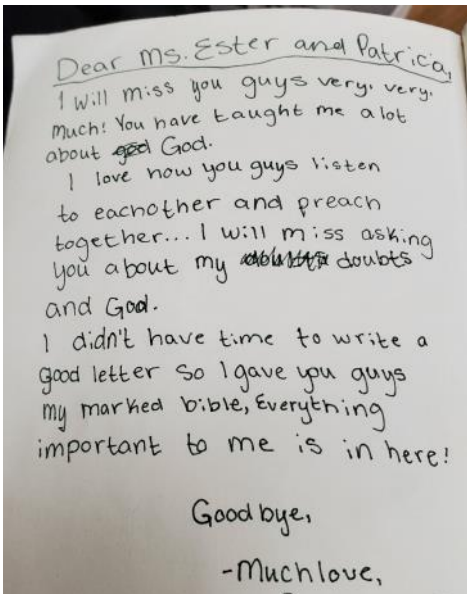 Dear Ms. Ester and Patricia,
I will miss you guys very, very,
much! You have taught me alot
about god God.
I love how you guys listen
to eachother and preach
together... I will miss asking
you about my doubts
and God.
I didn't have time to write a
good letter so I gave you guys
my marked bible, Everything
important to me is in here!
Goodbye,
-Much love,